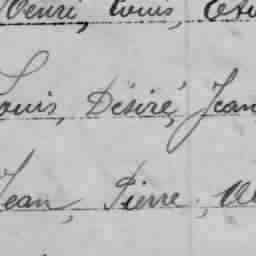 Henri, Louis,
Louis, Désiré, Jean
Jean, Pierre,